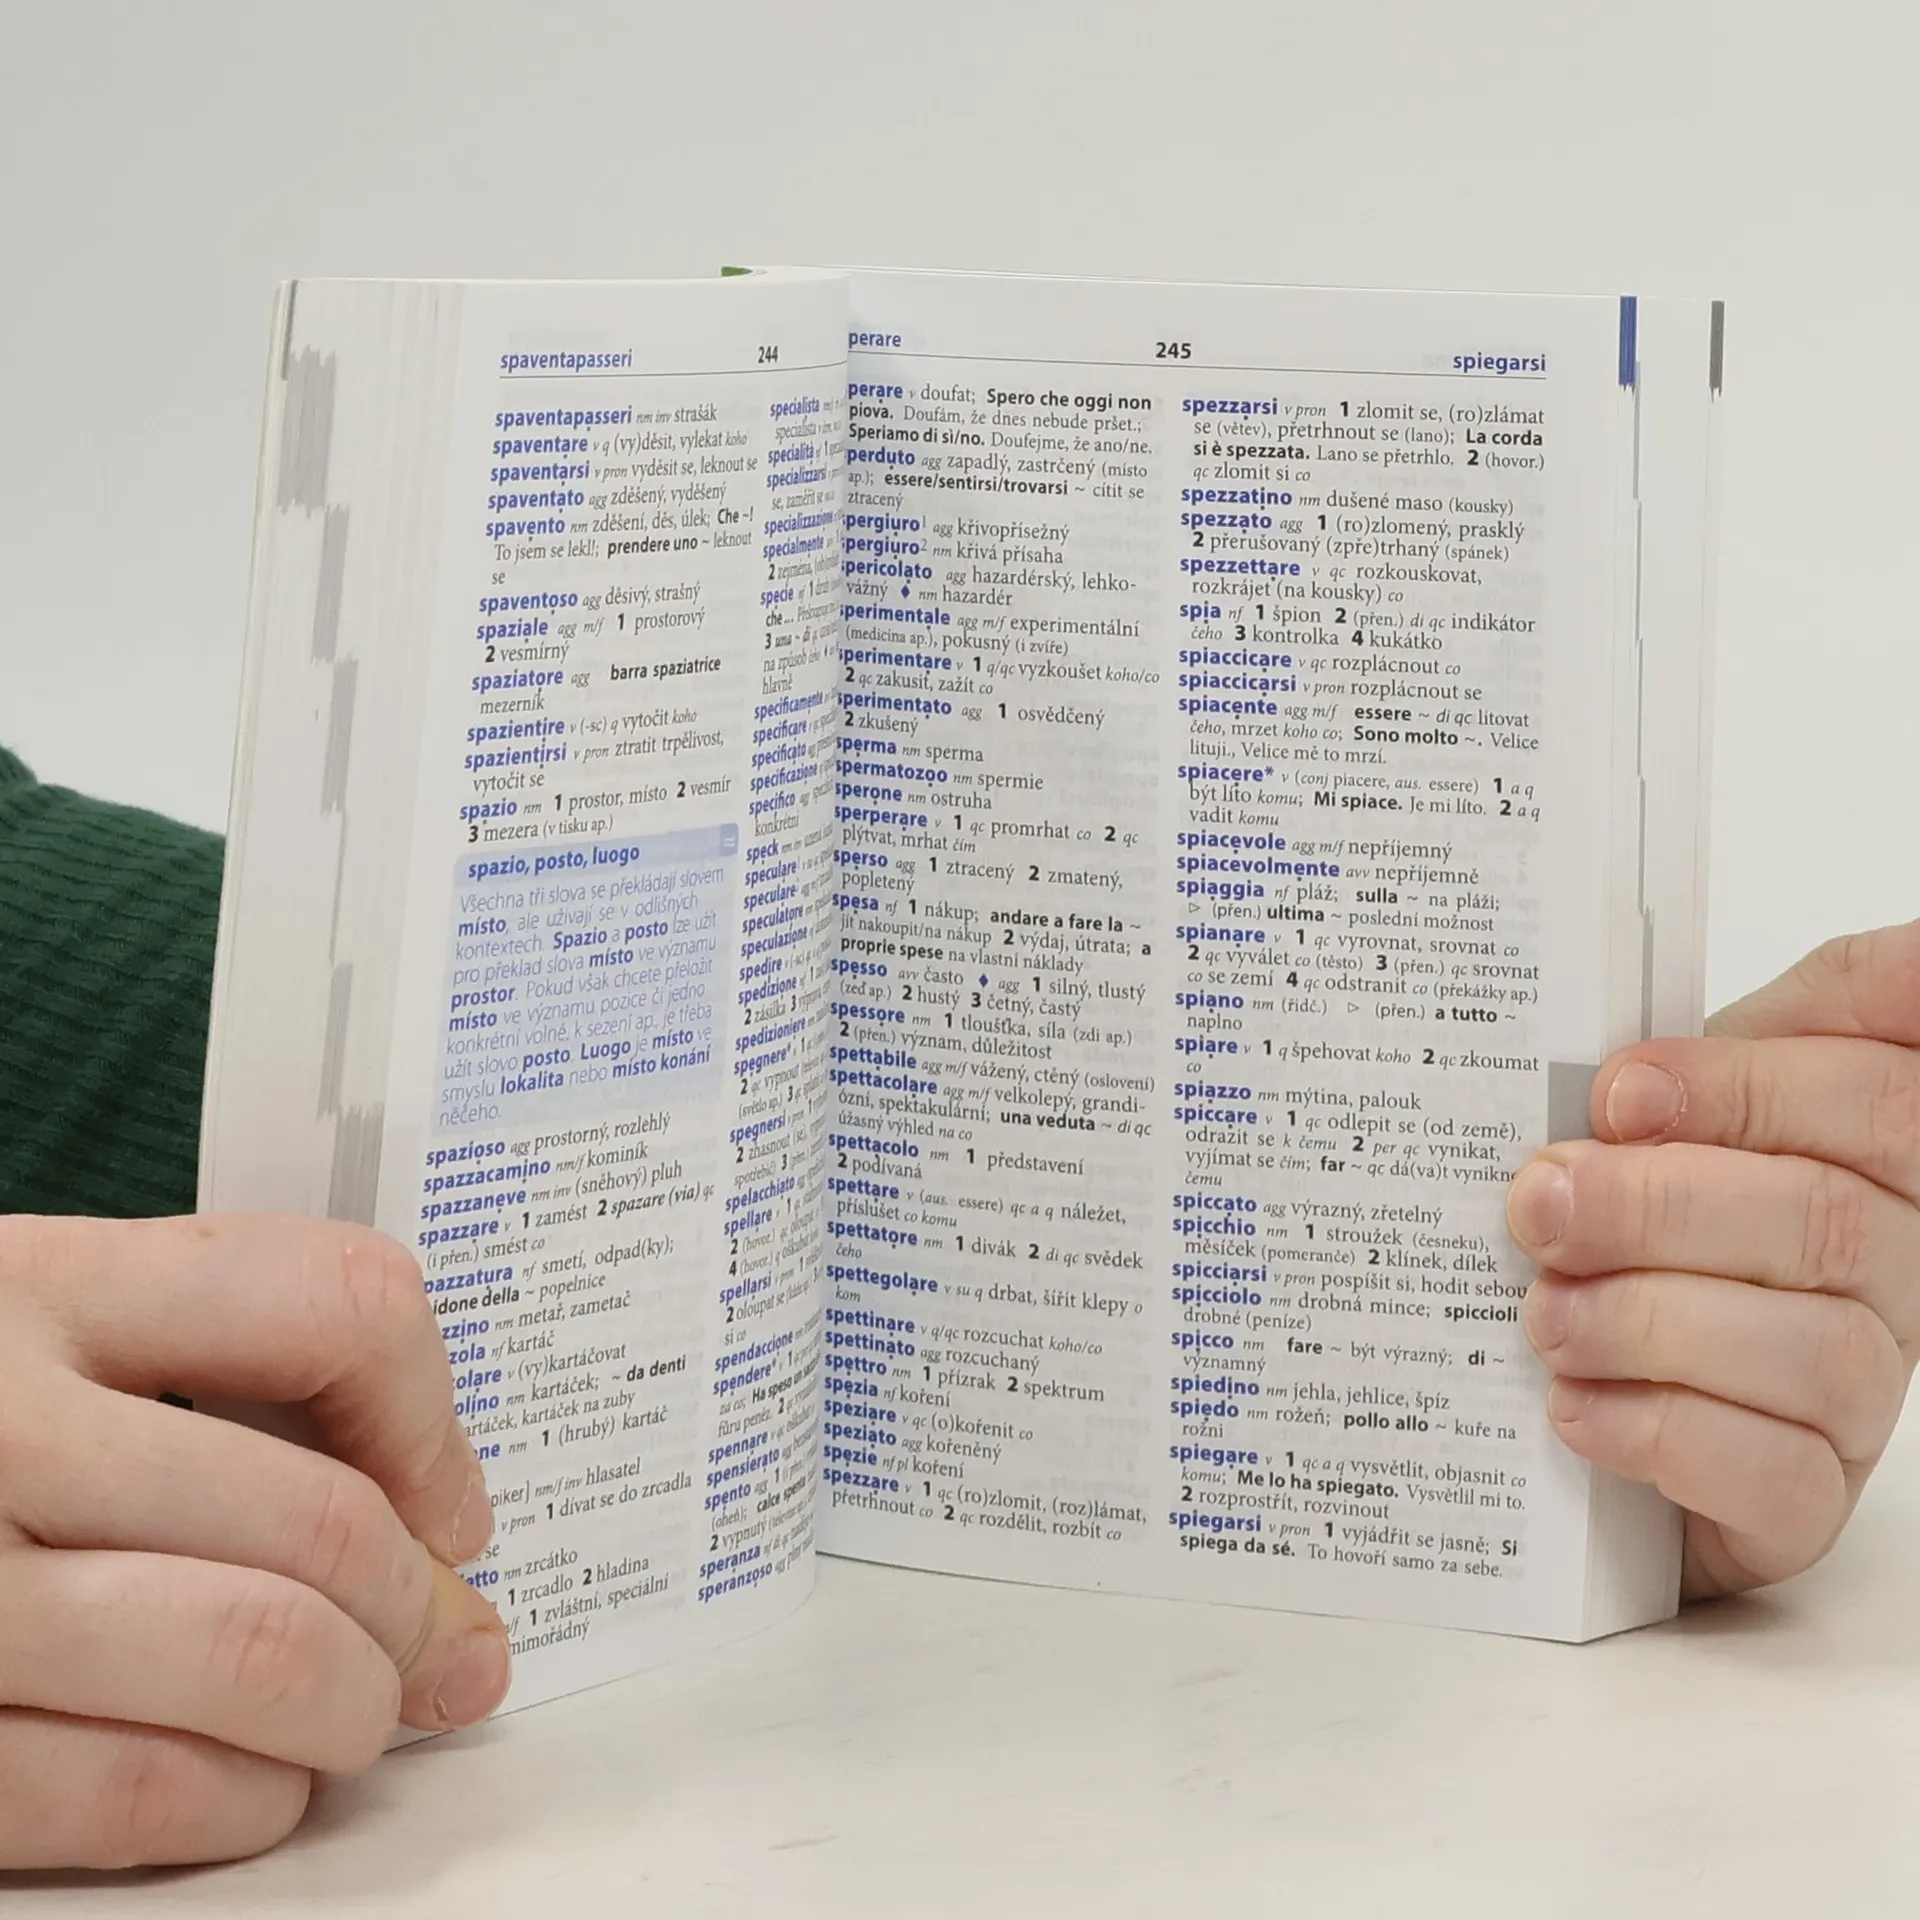 spaventapasseri
244
spaventapasseri nm inv strašák
spaventare v q (vy)děsit, vylekat koho
spaventarsi v pron vyděsit se, leknout se
spaventato agg zděšený, vyděšený
spavento nm zděšení, děs, úlek; Che ~!
To jsem se lekl!; prendere uno ~ leknout
se
spaventoso agg děsivý, strašný
spaziale agg m/f 1 prostorový
2 vesmírný
spaziatore agg barra spaziatrice
mezerník
spazientire v (-sc) q vytočit koho
spazientirsi v pron ztratit trpělivost,
vytočit se
spazio nm 1 prostor, místo 2 vesmír
3 mezera (v tisku ap.)
spazio, posto, luogo
Všechna tři slova se překládají slovem
místo, ale užívají se v odlišných
kontextech. Spazio a posto lze užít
pro překlad slova místo ve významu
prostor. Pokud však chcete přeložit
místo ve významu pozice či jedno
konkrétní volné, k sezení ap., je třeba
užít slovo posto. Luogo je místo ve
smyslu lokalita nebo místo konání
něčeho.
spazioso agg prostorný, rozlehlý
spazzacamino nm/f kominík
spazzaneve nm inv (sněhový) pluh
spazzare v 1 zamést 2 spazare (via) qc
(i přen.) smést co
pazzatura nf smetí, odpad(ky);
idone della ~ popelnice
zzino nm metař, zametač
zola nf kartáč
olare v (vy)kartáčovat
olino nm kartáček; ~ da denti
artáček, kartáček na zuby
one nm 1 (hrubý) kartáč
piker] nm/f inv hlasatel
v pron 1 dívat se do zrcadla
se
etto nm zrcátko
1 zrcadlo 2 hladina
m/f 1 zvláštní, speciální
mimořádný
specialista
specialità nf 1
specializzarsi
se, zaměřit se
specializzazione
specialmente
2 zejména,
specie nf 1 druh
che...
3 una ~ di
na způsob
hlavně
specificamente
specificare
specificato
specificazione
specifico agg
konkrétní
speck nm inv
speculare
speculare
speculatore
speculazione
spedire
spedizione nf 1
2 zásilka 3
spedizioniere
spegnere*
2 qc vypnout
(světlo ap.) 3 qc
spegnersi v pron 1
2 zhasnout (se),
spotřebič) 3
spelacchiato
spellare v 1
2 (hovor.) qc
4 (hovor.) q
spellarsi v pron 1
2 oloupat se
si co
spendaccione
spendere* v 1
za co; Ha speso un
fůru peněz. 2
spennare v
spensierato agg
spento agg 1
(oheň); calce spenta
2 vypnutý
speranza nf
speranzoso agg
perare
245
spiegarsi
perare v doufat; Spero che oggi non
piova. Doufám, že dnes nebude pršet.;
Speriamo di sì/no. Doufejme, že ano/ne.
perduto agg zapadlý, zastrčený (místo
ap.); essere/sentirsi/trovarsi ~ cítit se
ztracený
spergiuro¹ agg křivopřísežný
spergiuro² nm křivá přísaha
spericolato agg hazardérský, lehko-
vážný ♦ nm hazardér
sperimentale agg m/f experimentální
(medicína ap.), pokusný (i zvíře)
sperimentare v 1 q/qc vyzkoušet koho/co
2 qc zakusit, zažít co
sperimentato agg 1 osvědčený
2 zkušený
sperma nm sperma
spermatozoo nm spermie
sperone nm ostruha
sperperare v 1 qc promrhat co 2 qc
plýtvat, mrhat čím
sperso agg 1 ztracený 2 zmatený,
popletený
spesa nf 1 nákup; andare a fare la ~
jít nakoupit/na nákup 2 výdaj, útrata; a
proprie spese na vlastní náklady
spesso avv často ♦ agg 1 silný, tlustý
(zeď ap.) 2 hustý 3 četný, častý
spessore nm 1 tloušťka, síla (zdi ap.)
2 (přen.) význam, důležitost
spettabile agg m/f vážený, ctěný (oslovení)
spettacolare agg m/f velkolepý, grandi-
ózní, spektakulární; una veduta ~ di qc
úžasný výhled na co
spettacolo nm 1 představení
2 podívaná
spettare v (aus. essere) qc a q náležet,
příslušet co komu
spettatore nm 1 divák 2 di qc svědek
čeho
spettegolare v su q drbat, šířit klepy o
kom
spettinare v q/qc rozcuchat koho/co
spettinato agg rozcuchaný
spettro nm 1 přízrak 2 spektrum
spezia nf koření
speziare v qc (o)kořenit co
speziato agg kořeněný
spezie nf pl koření
spezzare v 1 qc (ro)zlomit, (roz)lámat,
přetrhnout co 2 qc rozdělit, rozbít co
spezzarsi v pron 1 zlomit se, (ro)zlámat
se (větev), přetrhnout se (lano); La corda
si è spezzata. Lano se přetrhlo. 2 (hovor.)
qc zlomit si co
spezzatino nm dušené maso (kousky)
spezzato agg 1 (ro)zlomený, prasklý
2 přerušovaný (zpře)trhaný (spánek)
spezzettare v qc rozkouskovat,
rozkrájet (na kousky) co
spia nf 1 špion 2 (přen.) di qc indikátor
čeho 3 kontrolka 4 kukátko
spiaccicare v qc rozplácnout co
spiaccicarsi v pron rozplácnout se
spiacente agg m/f essere ~ di qc litovat
čeho, mrzet koho co; Sono molto ~. Velice
lituji., Velice mě to mrzí.
spiacere* v (conj piacere, aus. essere) 1 a q
být líto komu; Mi spiace. Je mi líto. 2 a q
vadit komu
spiacevole agg m/f nepříjemný
spiacevolmente avv nepříjemně
spiaggia nf pláž; sulla ~ na pláži;
▷ (přen.) ultima ~ poslední možnost
spianare v 1 qc vyrovnat, srovnat co
2 qc vyválet co (těsto) 3 (přen.) qc srovnat
co se zemí 4 qc odstranit co (překážky ap.)
spiano nm (řidč.) ▷ (přen.) a tutto ~
naplno
spiare v 1 q špehovat koho 2 qc zkoumat
co
spiazzo nm mýtina, palouk
spiccare v 1 qc odlepit se (od země),
odrazit se k čemu 2 per qc vynikat,
vyjímat se čím; far ~ qc dá(va)t vynikn
čemu
spiccato agg výrazný, zřetelný
spicchio nm 1 stroužek (česneku),
měsíček (pomeranče) 2 klínek, dílek
spicciarsi v pron pospíšit si, hodit sebou
spicciolo nm drobná mince; spiccioli
drobné (peníze)
spicco nm fare ~ být výrazný; di ~
významný
spiedino nm jehla, jehlice, špíz
spiedo nm rožeň; pollo allo ~ kuře na
rožni
spiegare v 1 qc a q vysvětlit, objasnit co
komu; Me lo ha spiegato. Vysvětlil mi to.
2 rozprostřít, rozvinout
spiegarsi v pron 1 vyjádřit se jasně; Si
spiega da sé. To hovoří samo za sebe.